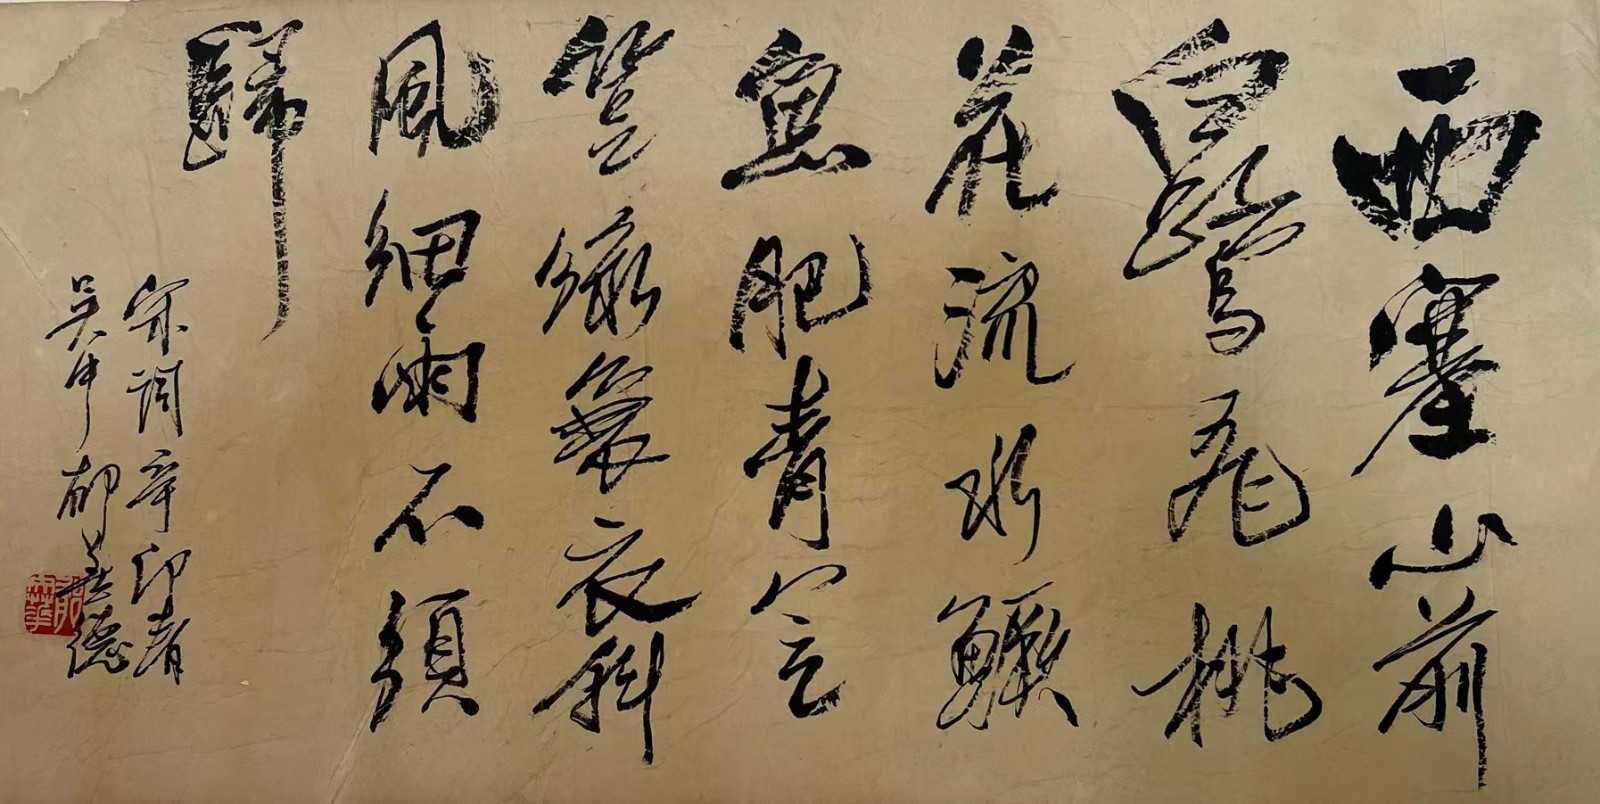 西塞山前
白鷺飛桃
花流水鱖
魚肥青箬
笠綠蓑衣斜
風細雨不須
歸
宋詞辛卯春
吳中郁德